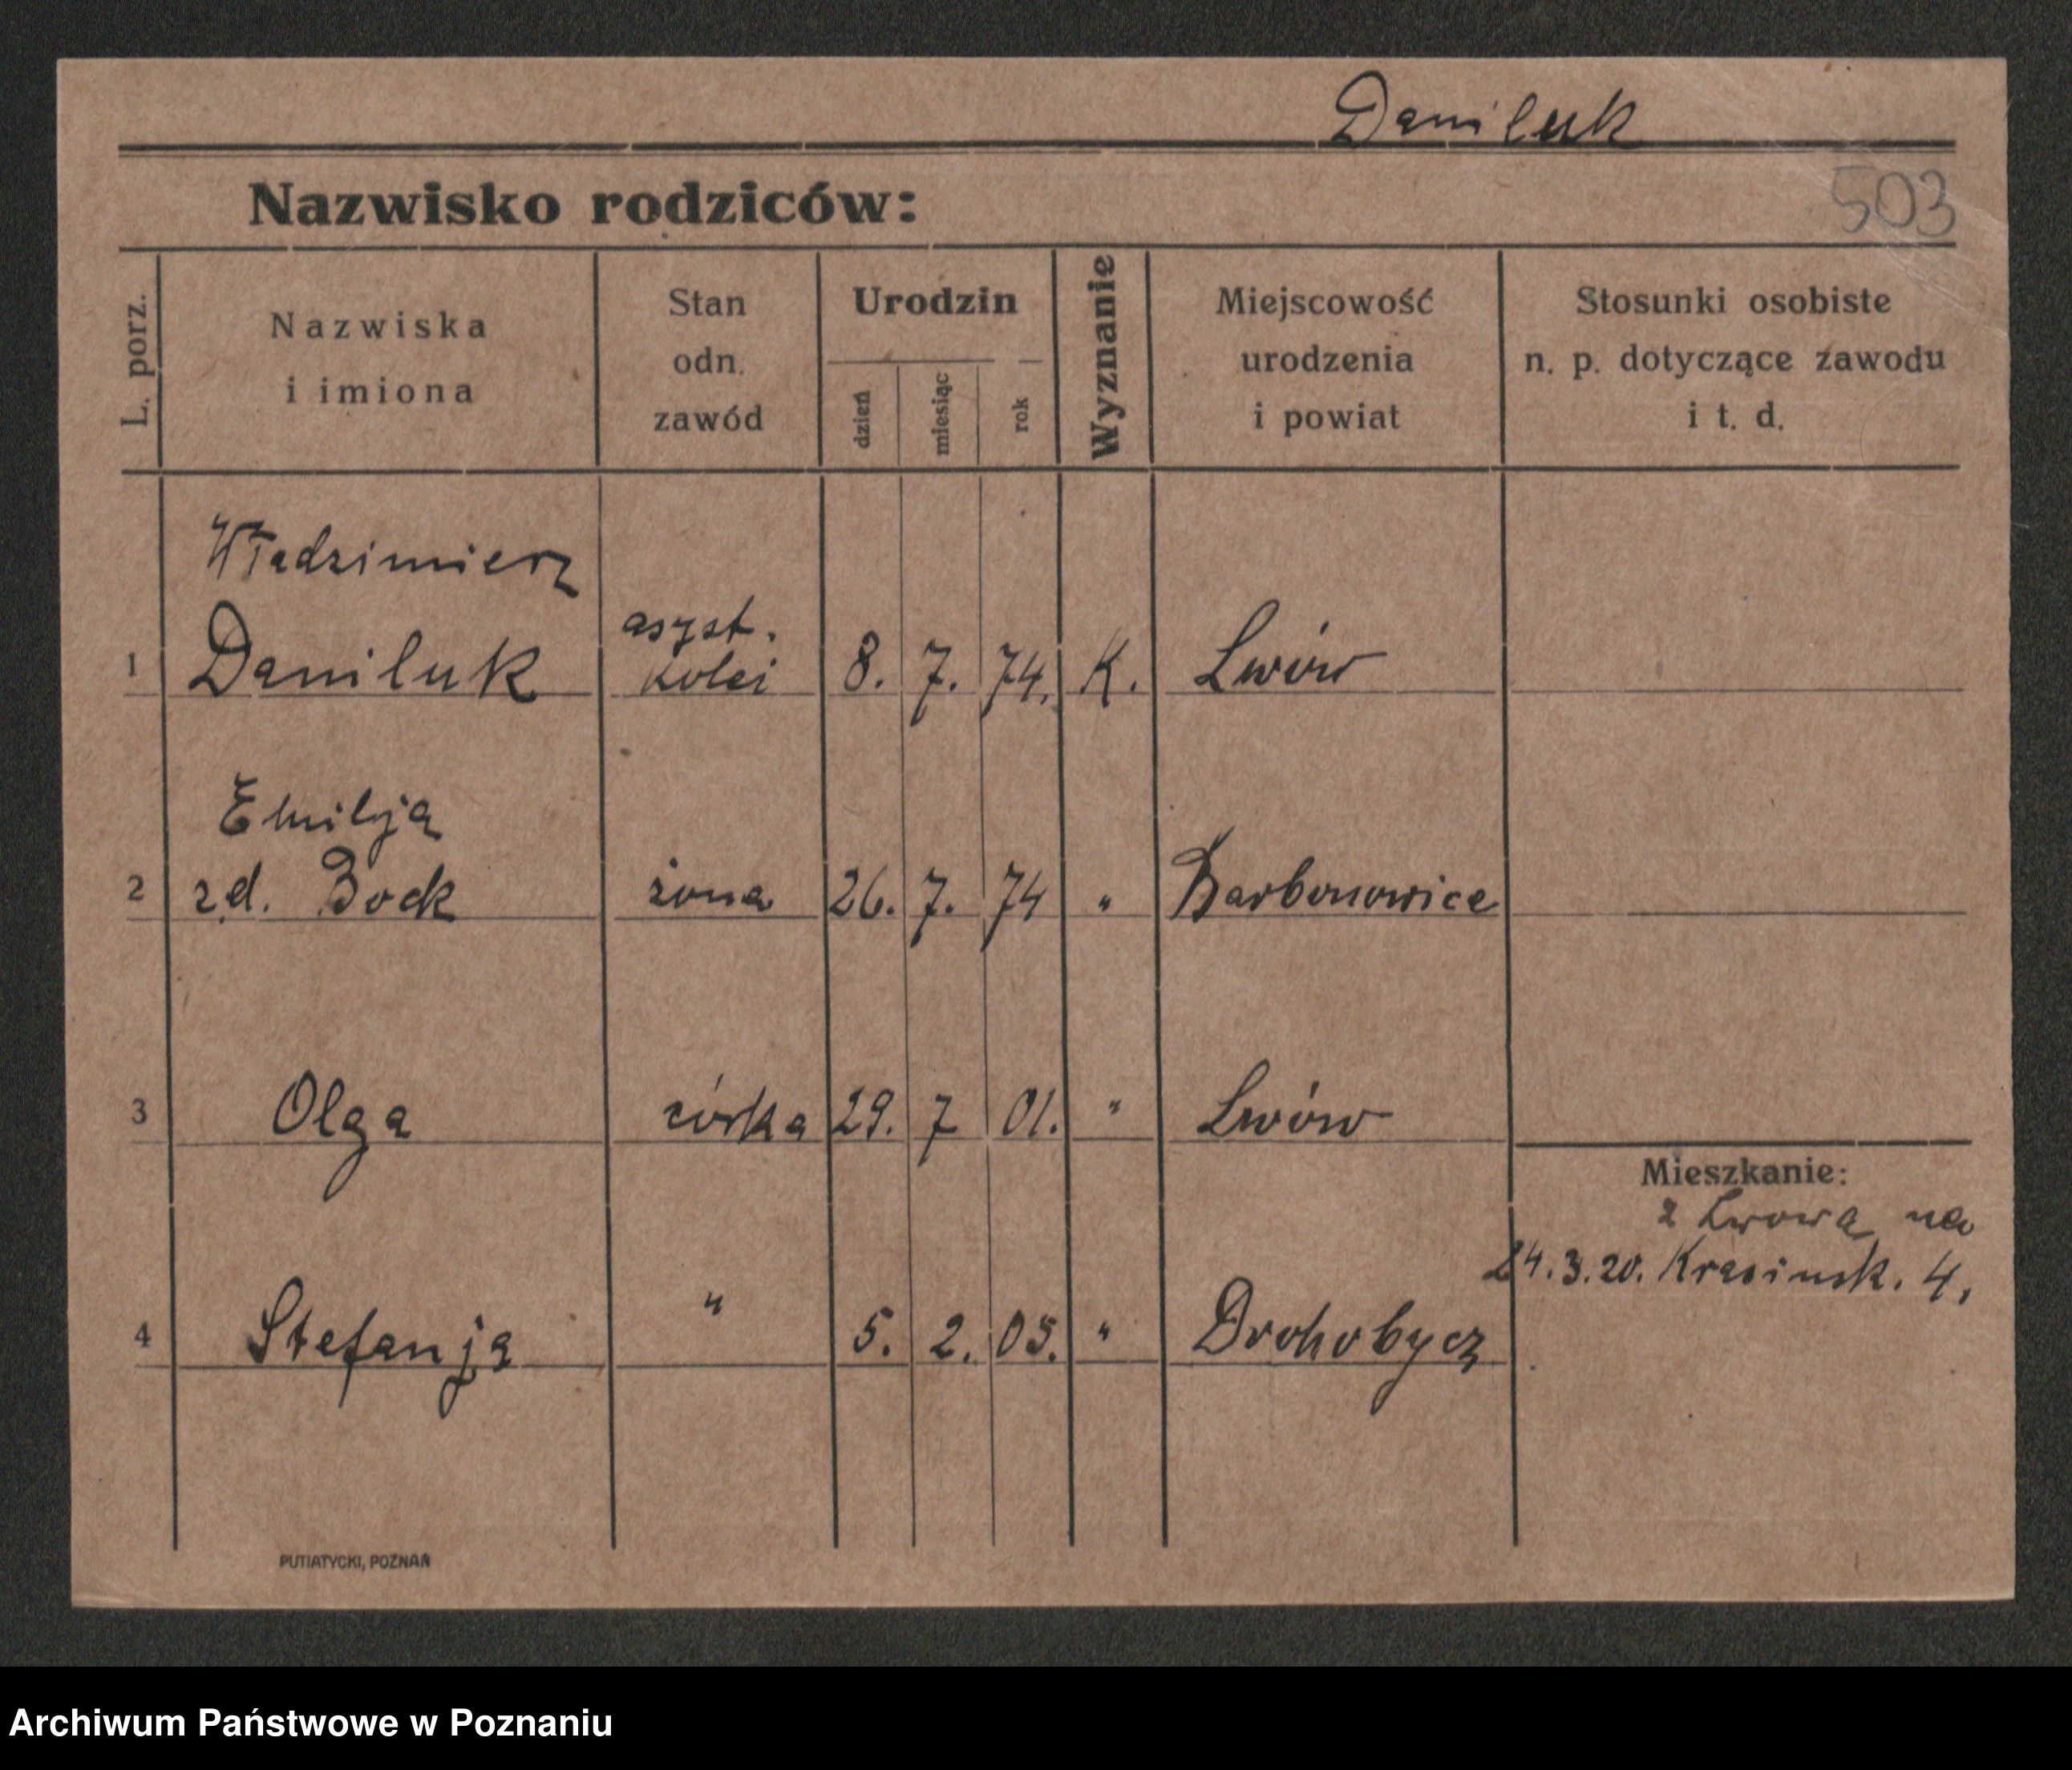 Daniluk
Nazwisko rodziców:
503
L. porz.
Nazwiska
i imiona
Stan
odn.
zawód
Urodzin
dzień
miesiąc
rok
Wyznanie
Miejscowość
urodzenia
i powiat
Stosunki osobiste
n. p. dotyczące zawodu
i t. d.
Władzimierz
asyst.
1 Daniluk kolei 8. 7. 74. K. Lwów
Emilja
2 zd. Bock żona 26. 7. 74 " Barbonowice
3 Olga córka 29. 7 01. " Lwów
Mieszkanie:
z Lwowa na
24.3.20. Krasińsk. 4,
4 Stefanja " 5. 2. 05. " Drohobycz
PUTIATYCKI, POZNAŃ
Archiwum Państwowe w Poznaniu